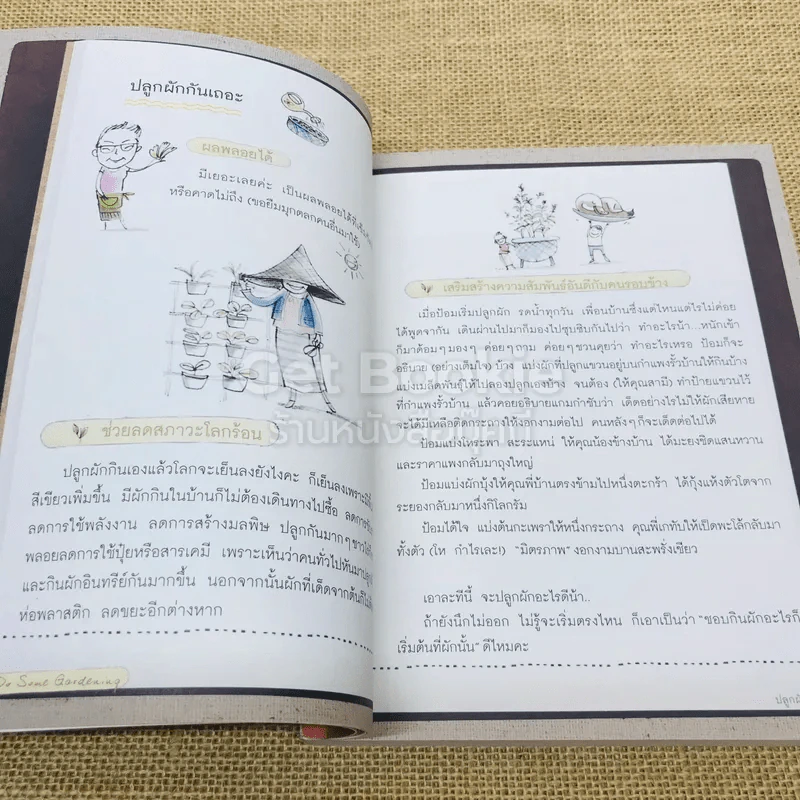 ปลูกผักกันเถอะ
ผลพลอยได้
มีเยอะเลยค่ะ เป็นผลพลอยได้ที่
หรือคาดไม่ถึง (ขอยืมมุกตลกคนอื่นมาใช้)
ช่วยลดสภาวะโลกร้อน
ปลูกผักกินเองแล้วโลกจะเย็นลงยังไงคะ ก็เย็นลงเพราะมี
สีเขียวเพิ่มขึ้น มีผักกินในบ้านก็ไม่ต้องเดินทางไปซื้อ
ลดการใช้พลังงาน ลดการสร้างมลพิษ ปลูกกันมากๆ
พลอยลดการใช้ปุ๋ยหรือสารเคมี เพราะเห็นว่าคนทั่วไปหันมา
และกินผักอินทรีย์กันมากขึ้น นอกจากนั้นผักที่เด็ดจากต้นก็
ห่อพลาสติก ลดขยะอีกต่างหาก
Do Some Gardening
เสริมสร้างความสัมพันธ์อันดีกับคนรอบข้าง
เมื่อป้อมเริ่มปลูกผัก รดน้ำทุกวัน เพื่อนบ้านซึ่งแต่ไหนแต่ไรไม่ค่อย
ได้พูดจากัน เดินผ่านไปมาก็มองไปซุบซิบกันไปว่า ทำอะไรน้า...หนักเข้า
ก็มาด้อมๆ มองๆ ค่อยๆ ถาม ค่อยๆ ชวนคุยว่า ทำอะไรเหรอ ป้อมก็จะ
อธิบาย (อย่างเต็มใจ) บ้าง แบ่งผักที่ปลูกแขวนอยู่บนกำแพงรั้วบ้านให้กินบ้าง
แบ่งเมล็ดพันธุ์ให้ไปลองปลูกเองบ้าง จนต้อง (ให้คุณสามี) ทำป้ายแขวนไว้
ที่กำแพงรั้วบ้าน แล้วคอยอธิบายแถมกำชับว่า เด็ดอย่างไรไม่ให้ผักเสียหาย
จะได้มีเหลือติดกระถางให้งอกงามต่อไป คนหลังๆ ก็จะเด็ดต่อได้
ป้อมแบ่งโหระพา สะระแหน่ ให้คุณน้องข้างบ้าน ได้มะยงชิดแสนหวาน
และราคาแพงกลับมาถุงใหญ่
ป้อมแบ่งผักบุ้งให้คุณพี่บ้านตรงข้ามไปหนึ่งตะกร้า ได้กุ้งแห้งตัวโตจาก
ระยองกลับมาหนึ่งกิโลกรัม
ป้อมได้ใจ แบ่งต้นกะเพราให้หนึ่งกระถาง คุณพี่เกทับให้เป็ดพะโล้กลับมา
ทั้งตัว (โห กำไรเละ!) "มิตรภาพ" งอกงามบานสะพรั่งเชียว
เอาละทีนี้ จะปลูกผักอะไรดีน้า..
ถ้ายังนึกไม่ออก ไม่รู้จะเริ่มตรงไหน ก็เอาเป็นว่า "ชอบกินผักอะไรก็
เริ่มต้นที่ผักนั้น" ดีไหมคะ
Get Bookie
ร้านหนังสือบุ๊คกี้